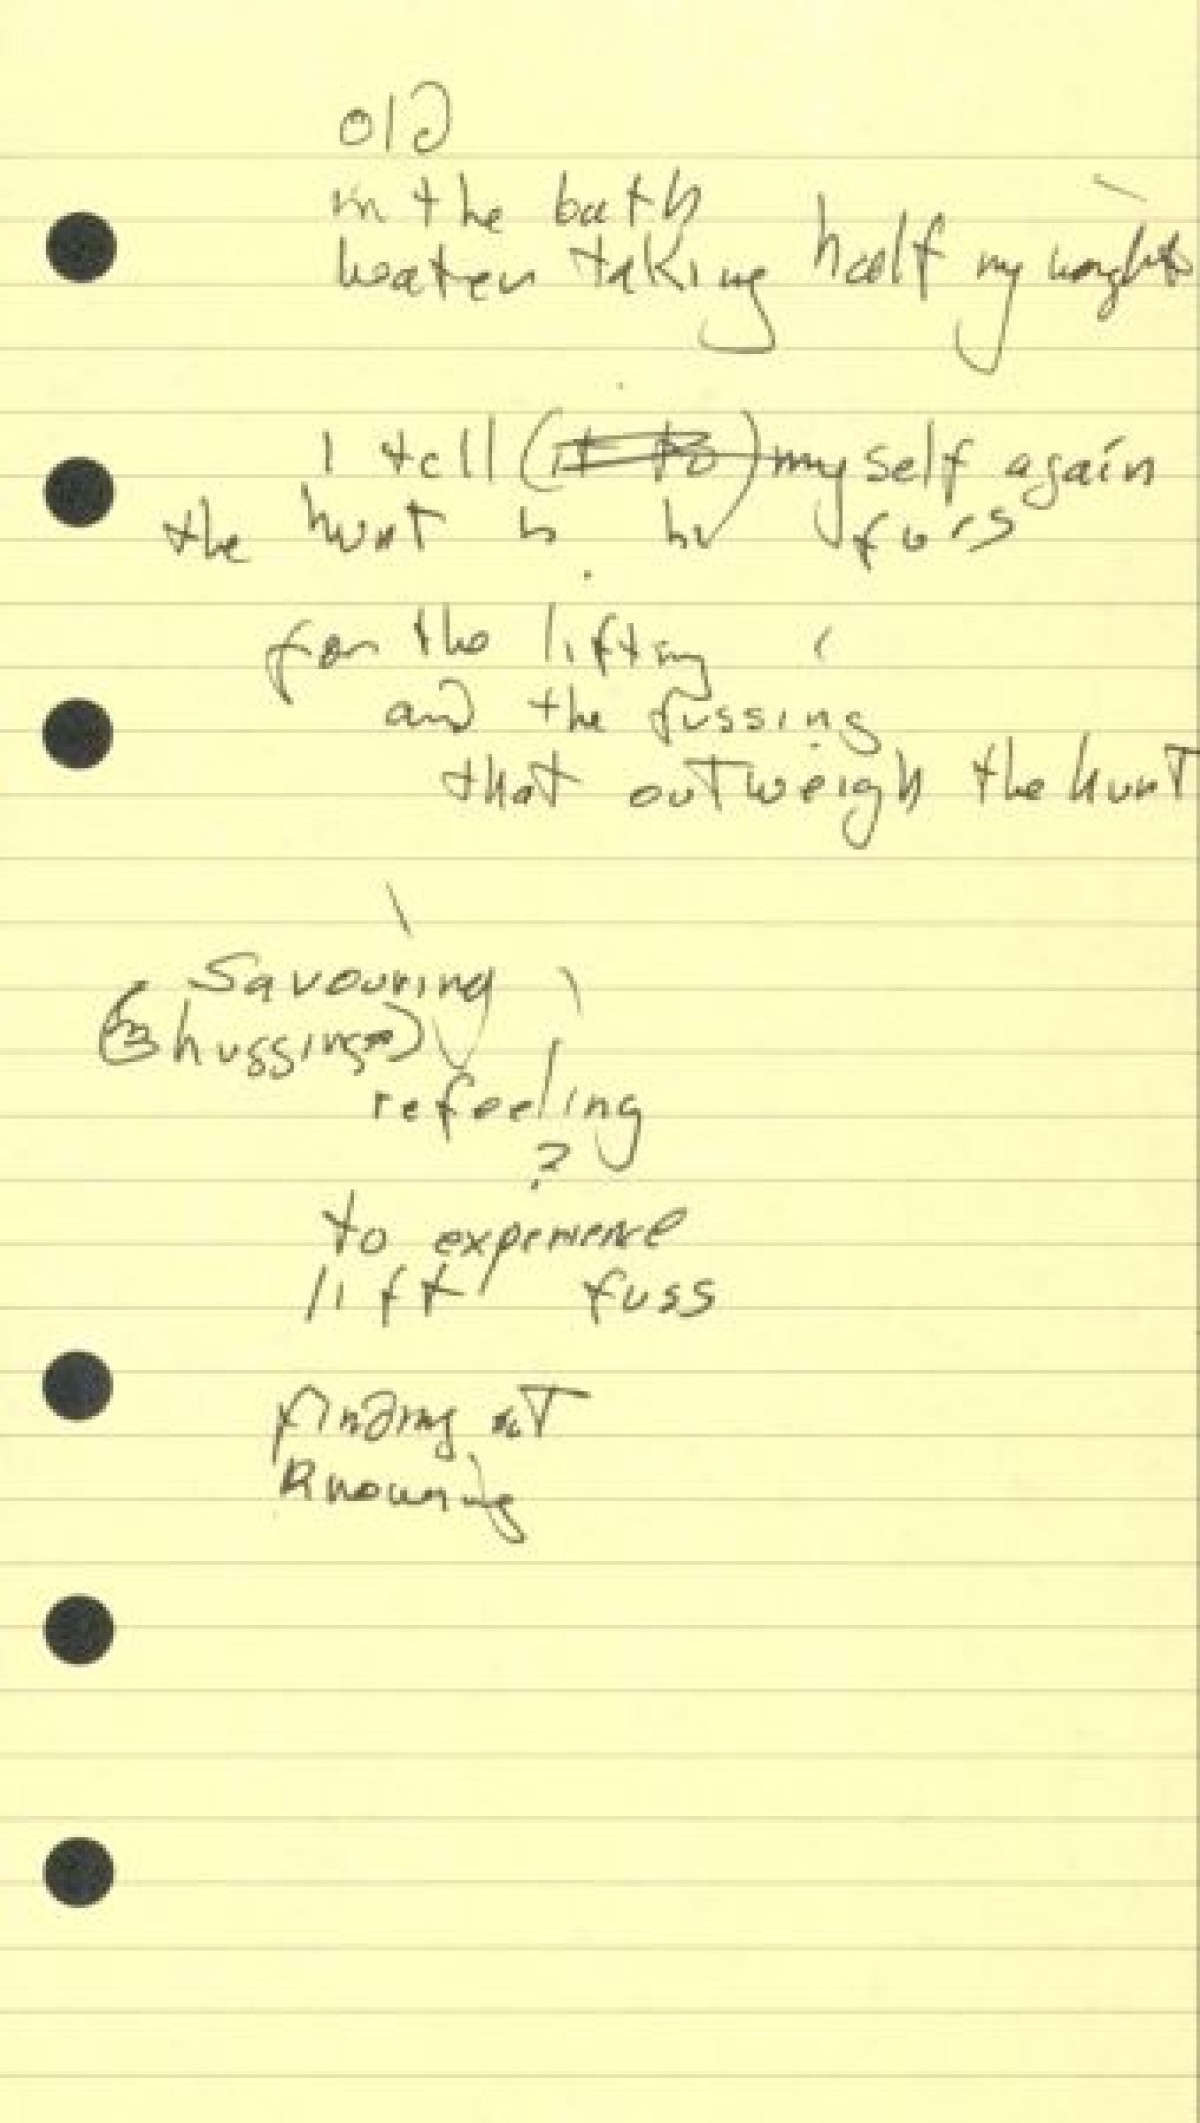 old
in the bath
water taking half my weight
I tell (it to) myself again
the hunt is by furs
for the lifting
and the fussing
that outweigh the hunt
Savouring
hussing
refeeling
?
to experience
lift fuss
finding out
Knowing